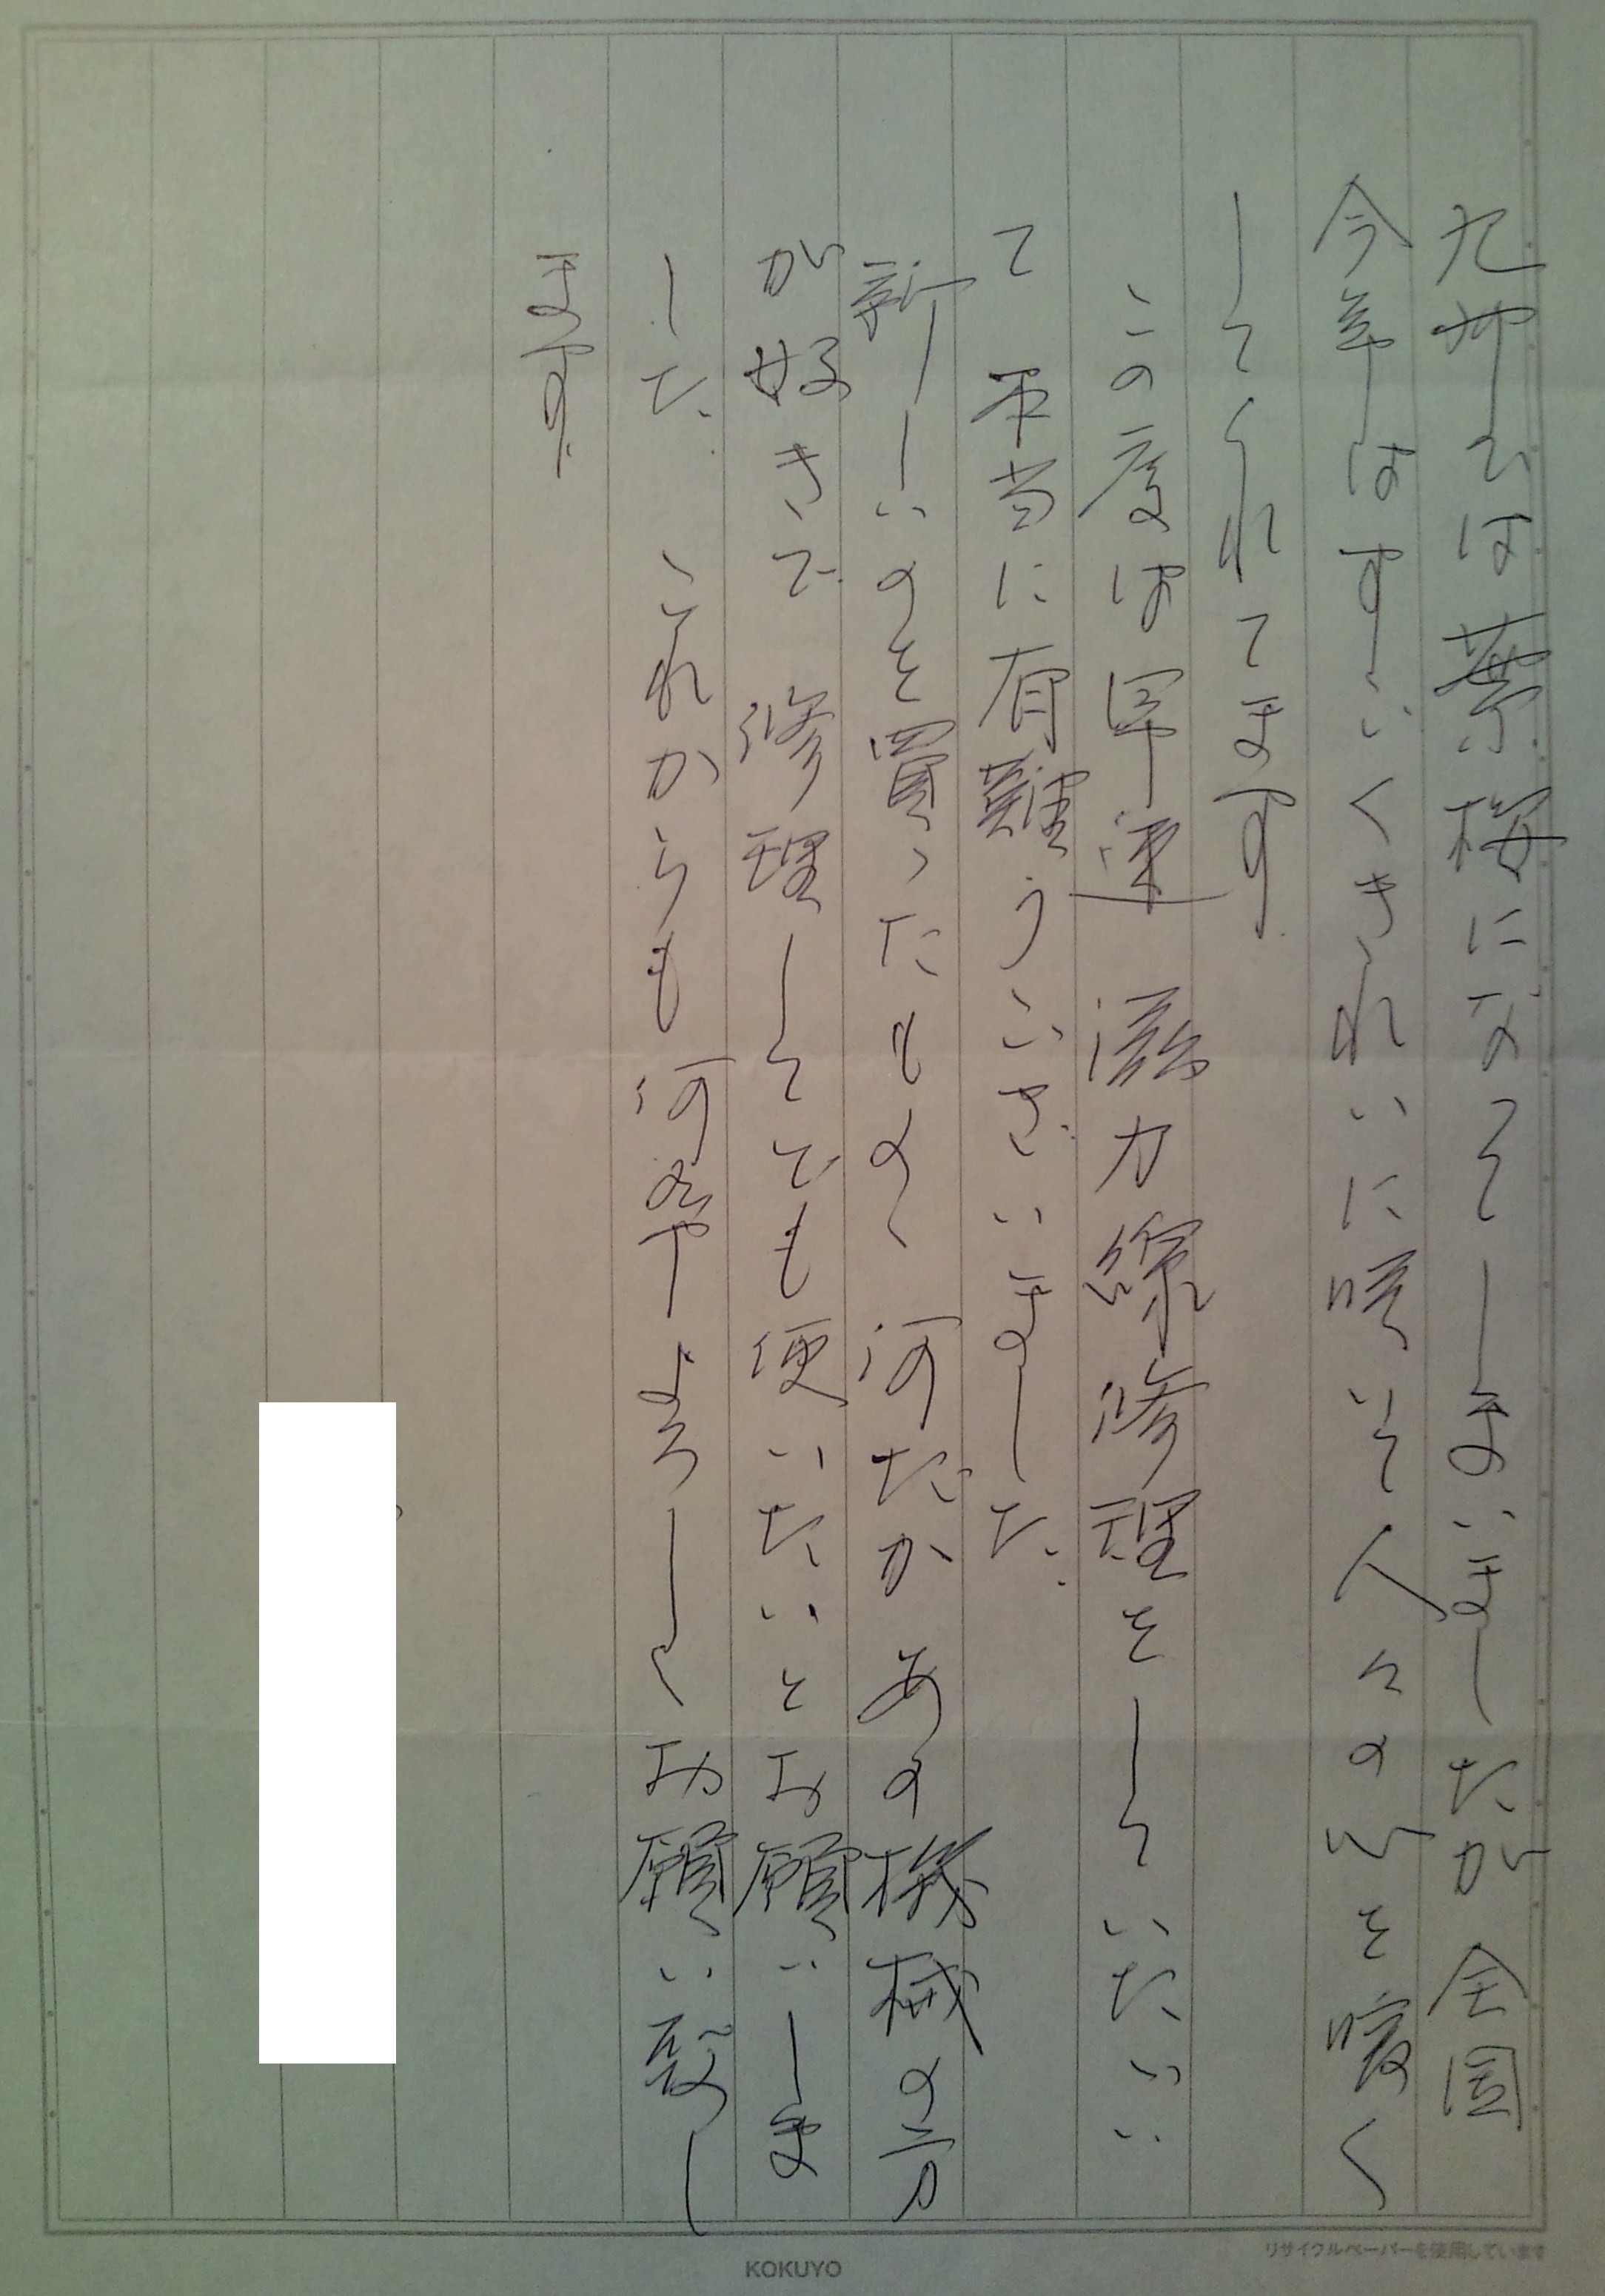 九州では葉桜になってしまいましたが 全国
今年はすごくきれいに咲いて人々の心を暖く
してくれてます
この度は早速 磁力線修理をしていただい
て 本当に有難うございました。
新しいのを買ったものゝ 何だか あの機械の方
が好きで 修理してでも使いたいとお願いしま
した。 これからも何卒よろしくお願い致し
ます。
KOKUYO
リサイクルペーパーを使用しています